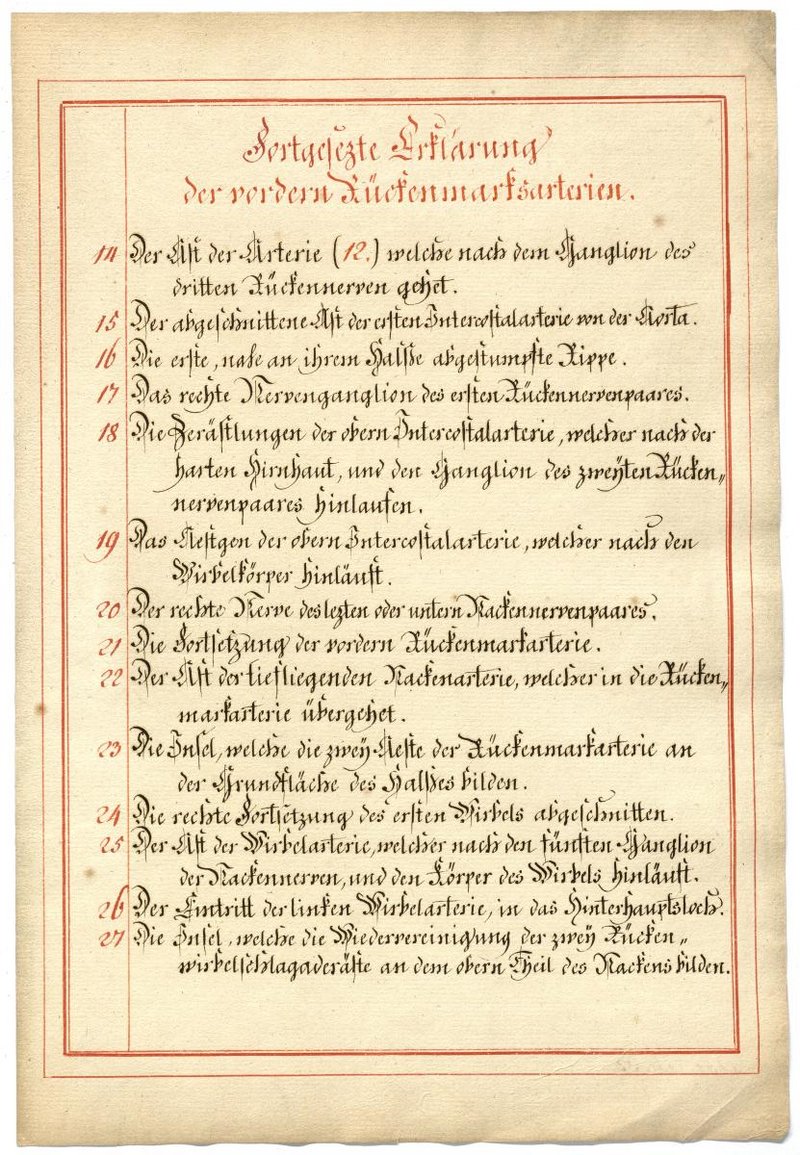 Fortgesezte Erklärung
der vordern Rückenmarksarterien.
14 Der Ast der Arterie (12.) welche nach dem Ganglion des
dritten Rückennerven gehet.
15 Der abgeschnittene Ast der ersten Intercostalarterie von der Aorta.
16 Die erste, nahe an ihrem Halße abgestumpfte Rippe.
17 Das rechte Nervenganglion des ersten Rückennervenpaares.
18 Die Zerästlungen der obern Intercostalarterie, welcher nach der
harten Hirnhaut, und den Ganglion des zweyten Rücken„
nervenpaares hinlaufen.
19 Das Aestgen der obern Intercostalarterie, welcher nach den
Wirbelkörper hinläuft.
20 Der rechte Nerve des lezten oder untern Nackennervenpaares.
21 Die Fortsetzung der vordern Rückenmarkarterie.
22 Der Ast der tiefliegenden Nackenarterie, welcher in die Rücken„
markarterie übergehet.
23 Die Insel, welche die zwey Aeste der Rückenmarkarterie an
der Grundfläche des Halßes bilden.
24 Die rechte Fortsetzung des ersten Wirbels abgeschnitten.
25 Der Ast der Wirbelarterie, welcher nach den fünften Ganglion
der Nackennerven, und den Körper des Wirbels hinläuft.
26 Der Eintritt der linken Wirbelarterie, in das Hinterhauptsloch.
27 Die Insel, welche die Wiedervereinigung der zwey Rücken„
wirbelschlagaderäste an dem obern Theil des Nackens bilden.